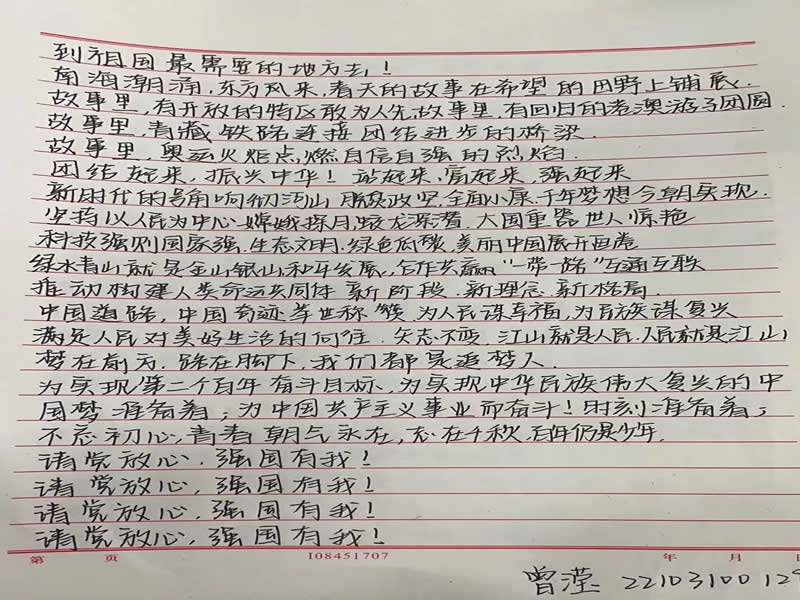 到祖国最需要的地方去！
南海潮涌，东方风来，春天的故事在希望的田野上铺展.
故事里，有开放的特区敢为人先，故事里，有回归的港澳游子团圆.
故事里，青藏铁路连接团结进步的桥梁.
故事里，奥运火炬点燃自信自强的烈焰.
团结起来，振兴中华！站起来，富起来，强起来
新时代的号角响彻江山，脱贫攻坚，全面小康，千年梦想今朝实现.
坚持以人民为中心，嫦娥探月，蛟龙深潜，大国重器世人惊艳
科技强则国家强，生态文明，绿色低碳，美丽中国展开画卷
绿水青山就是金山银山，和平发展，合作共赢，“一带一路”互通互联
推动构建人类命运共同体 新阶段.新理念 新格局.
中国道路，中国奇迹举世称赞 为人民谋幸福，为民族谋复兴
满足人民对美好生活的向往 矢志不变，江山就是人民，人民就是江山
梦在前方，路在脚下，我们都是追梦人.
为实现第二个百年奋斗目标，为实现中华民族伟大复兴的中
国梦准备着；为中国共产主义事业而奋斗！时刻准备着；
不忘初心，青春朝气永在，志在千秋，百年仍是少年.
请党放心，强国有我！
请党放心，强国有我！
请党放心，强国有我！
请党放心，强国有我！
第 页 I08451707 年 月 日
曾滢 22103100129